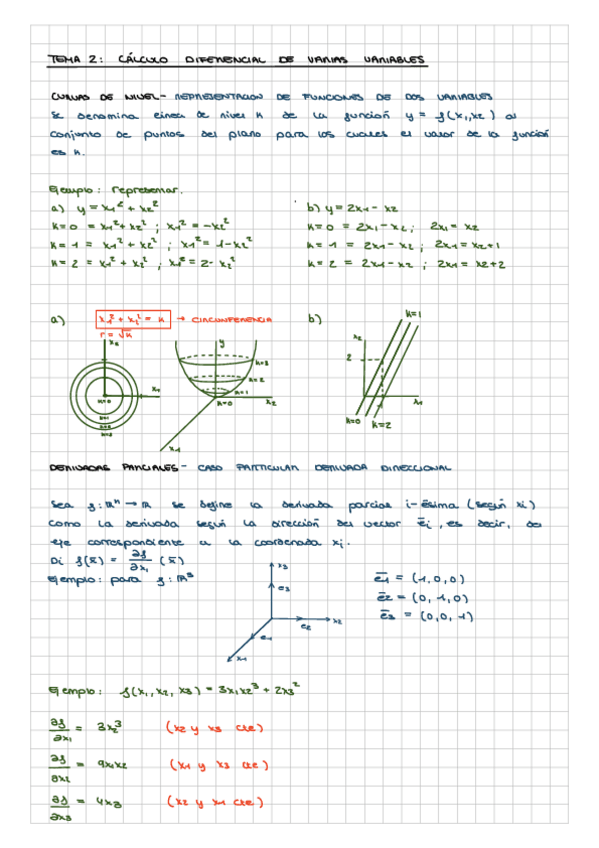 TEMA 2: CÁLCULO DIFERENCIAL DE VARIAS VARIABLES
CURVAS DE NIVEL - REPRESENTACION DE FUNCIONES DE DOS VARIABLES
Se denomina linea de nivel K de la función y = f(x₁,x₂) al
conjunto de puntos del plano para los cuales el valor de la función
es K.
Ejemplo: representar.
a) y = x₁² + x₂²
b) y = 2x₁ - x₂
K=0 = x₁² + x₂² ; x₁² = -x₂²
K=0 = 2x₁ - x₂ ; 2x₁ = x₂
K=1 = x₁² + x₂² ; x₁² = 1-x₂²
K=1 = 2x₁ - x₂ ; 2x₁ = x₂+1
K=2 = x₁² + x₂² ; x₁² = 2-x₂²
K=2 = 2x₁ - x₂ ; 2x₁ = x₂+2
a)
x₁² + x₂² = K → CIRCUNFERENCIA
r = √K
b)
x₂
x₁
K=0
K=1
K=2
K=3
y
K=3
K=2
K=1
K=0
x₂
x₁
K=1
x₂
2
1
x₁
K=0
K=2
DERIVADAS PARCIALES - CASO PARTICULAR DERIVADA DIRECCIONAL
Sea f: ℝⁿ → ℝ se define la derivada parcial i-ésima (según xi)
como la derivada según la dirección del vector e̅i, es decir, del
eje correspondiente a la coordenada xi.
Di f(x̅) = ∂f/∂x₁ (x̅)
Ejemplo: para f: ℝ³
x₃
e₃
e₂
x₂
e₁
x₁
e̅₁ = (1,0,0)
e̅₂ = (0,1,0)
e̅₃ = (0,0,1)
Ejemplo: f(x₁,x₂,x₃) = 3x₁x₂³ + 2x₃²
∂f/∂x₁ = 3x₂³ (x₂ y x₃ cte)
∂f/∂x₂ = 9x₁x₂ (x₁ y x₃ cte)
∂f/∂x₃ = 4x₃ (x₂ y x₁ cte)